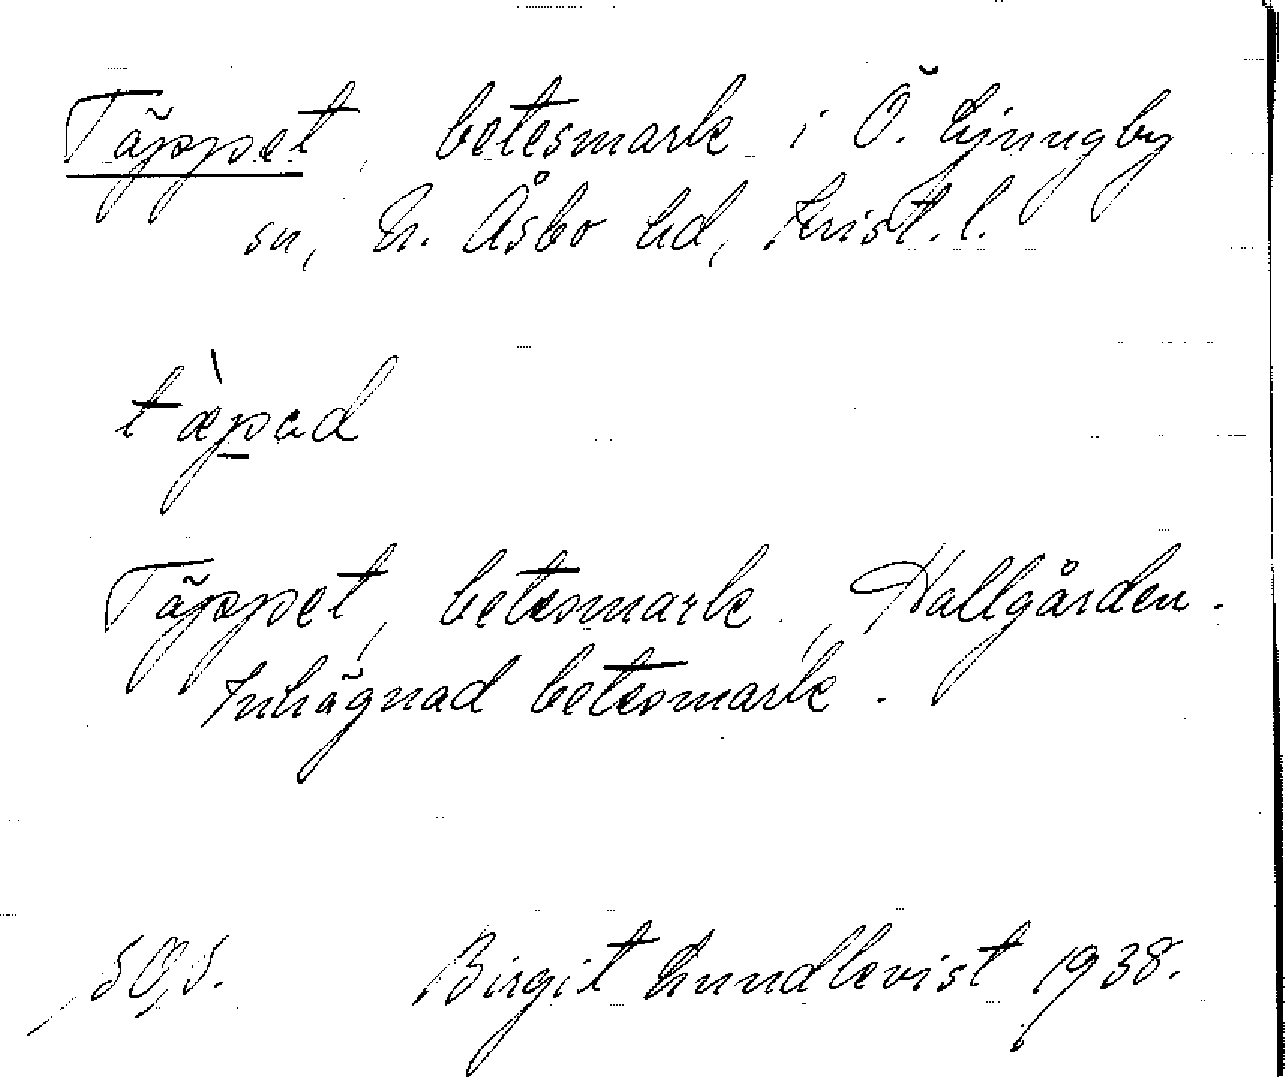 Täppet, betesmark i Ö. Ljungby
sn, N. Åsbo hd, Krist. l.
tæ̀pad
Täppet, betesmark, Hallgården.
Inhägnad betesmark.
Birgit Lundkvist 1938.